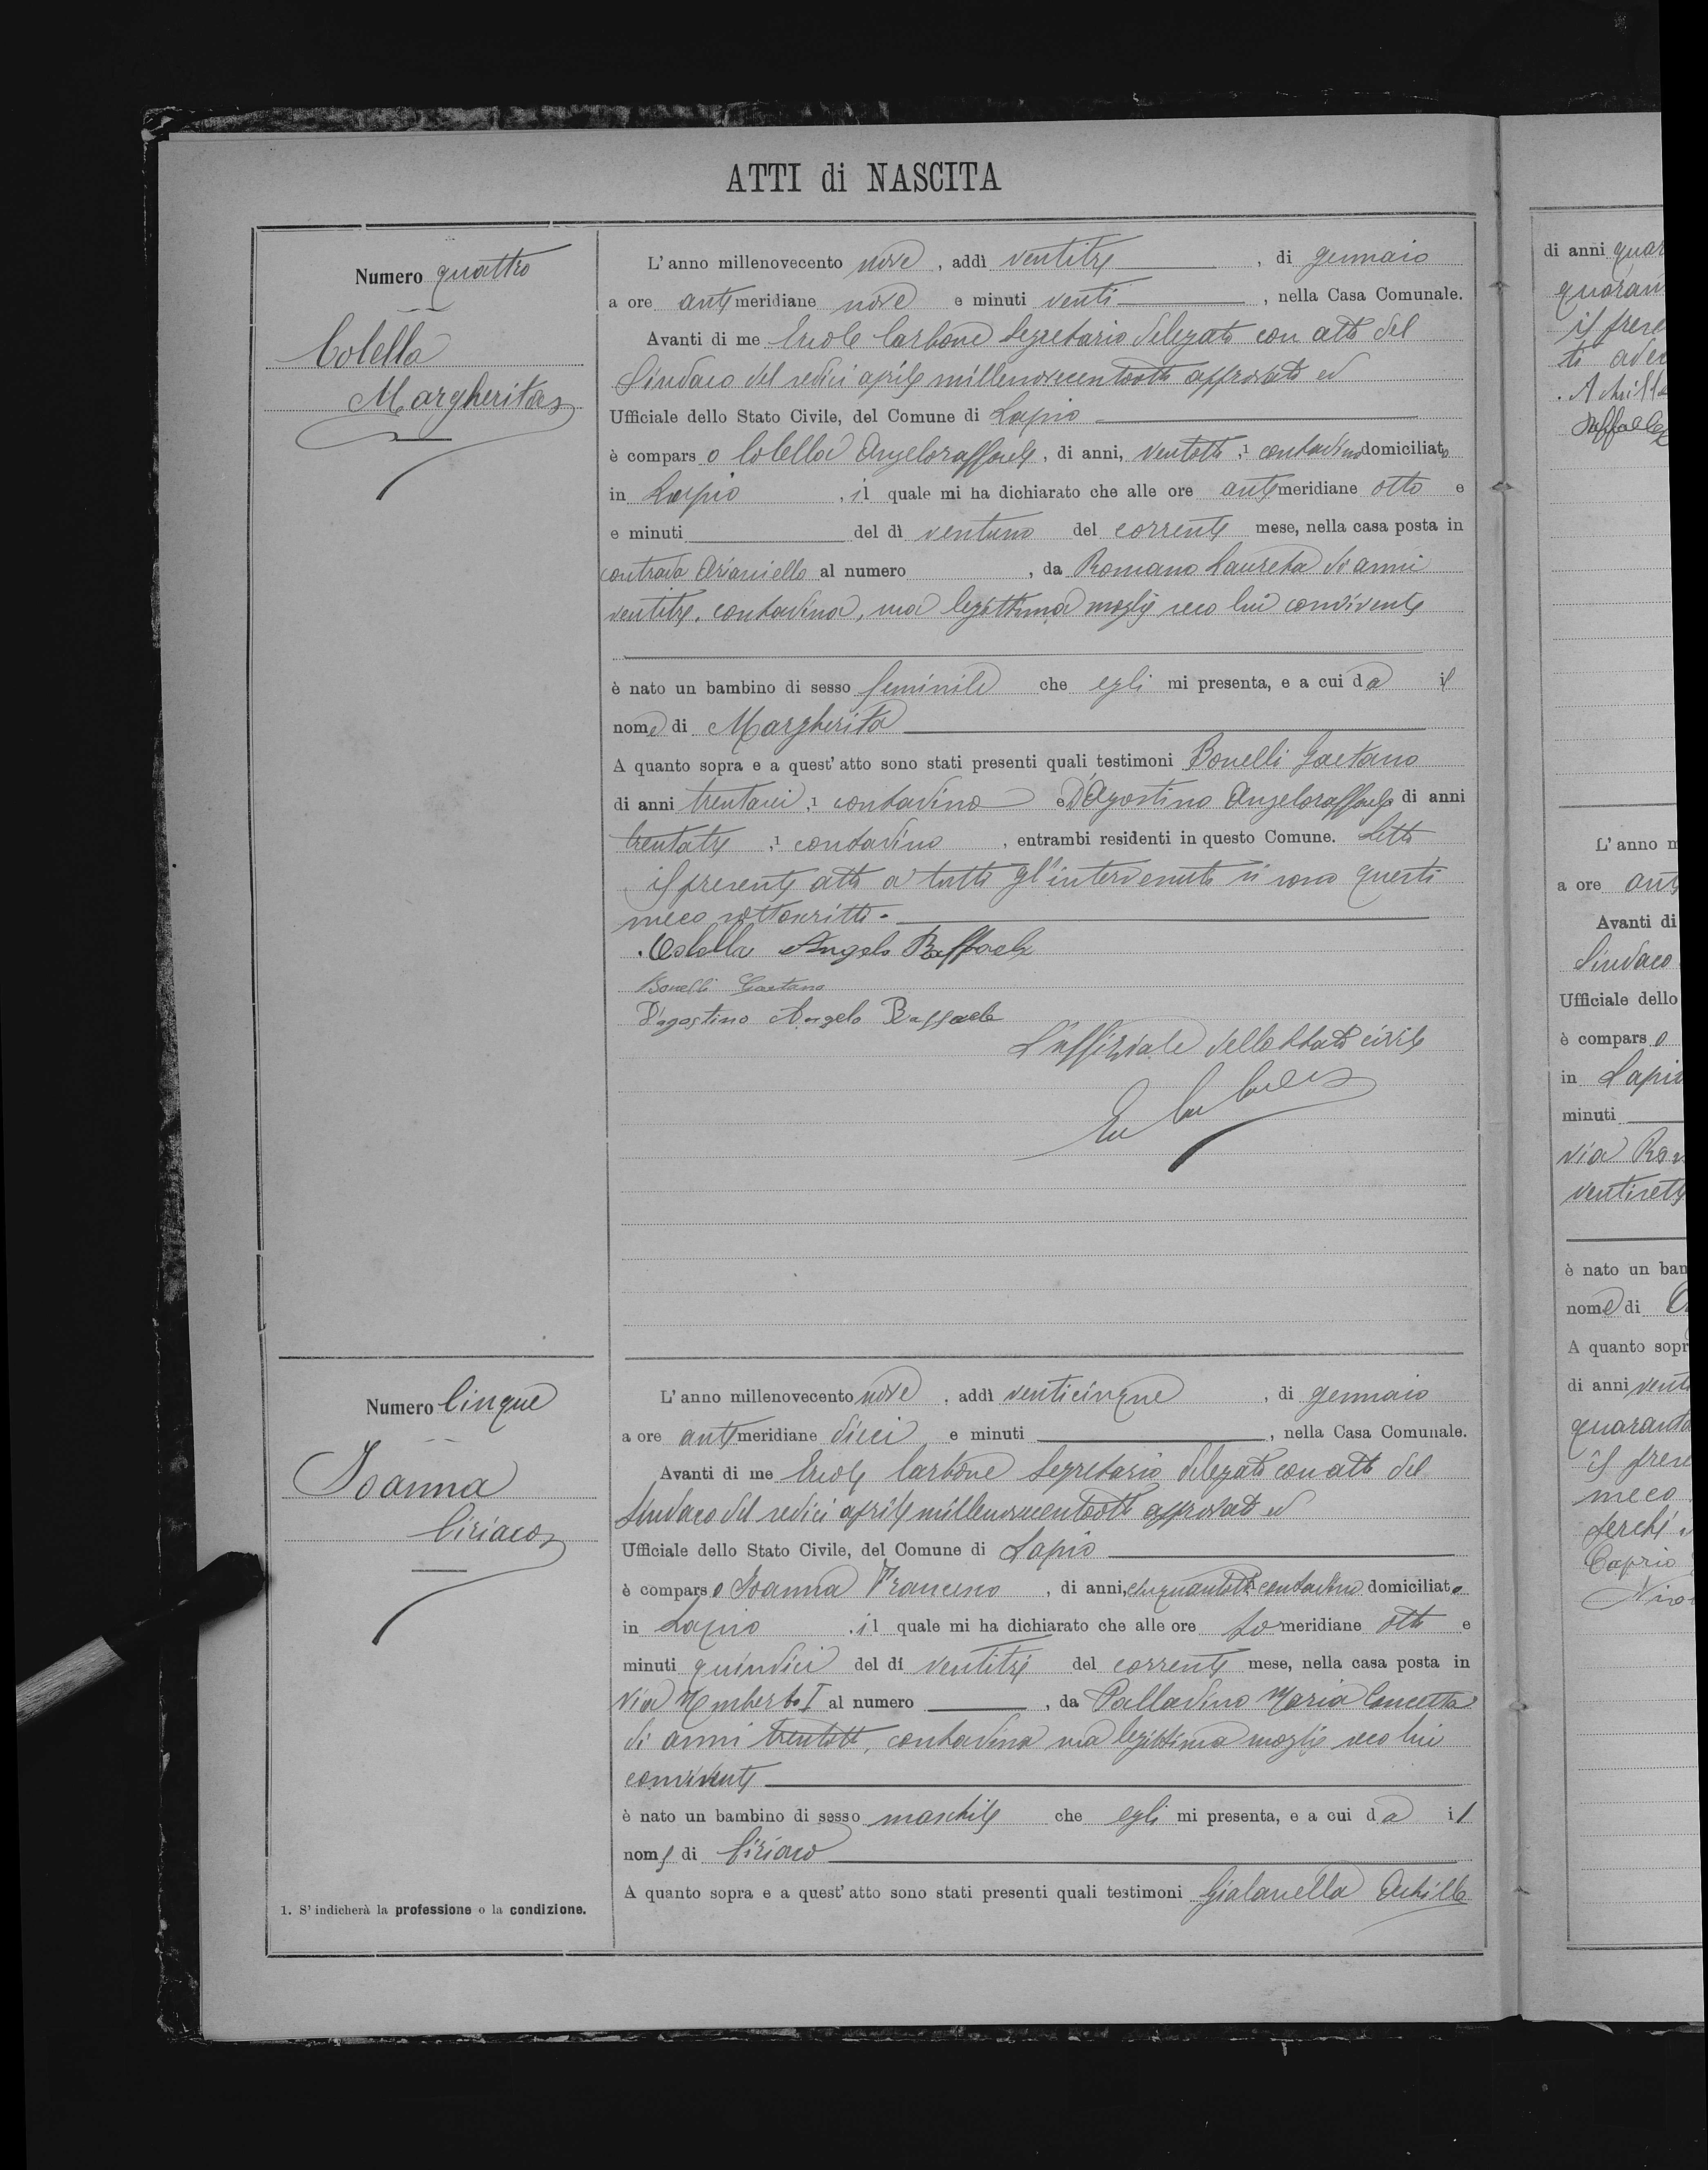 ATTI di NASCITA
Numero quattro
Colella
Margherita
L'anno millenovecento nove, addì ventitre, di gennaio
a ore antimeridiane nove e minuti venti, nella Casa Comunale.
Avanti di me Ercole Carbone Segretario delegato con atto del
Sindaco del sedici aprile millenovecentootto approvato ed
Ufficiale dello Stato Civile, del Comune di Lapio
è comparso Colella Angeloraffaele, di anni, ventotto, 1 contadino domiciliato
in Lapio, il quale mi ha dichiarato che alle ore antimeridiane otto e
e minuti del dì ventuno del corrente mese, nella casa posta in
contrada Arianiello al numero, da Romano Laureta di anni
ventitre, contadina, sua legittima moglie seco lui convivente
è nato un bambino di sesso feminile che egli mi presenta, e a cui da il
nome di Margherita
A quanto sopra e a quest'atto sono stati presenti quali testimoni Bonelli Gaetano
di anni trentasei, 1 contadino e D'Agostino Angeloraffaele di anni
trentatre, 1 contadino, entrambi residenti in questo Comune. Letto
il presente atto a tutti gl'intervenuti si sono questi
meco sottoscritti.
Colella Angelo Raffaele
Bonelli Gaetano
D'agostino Angelo Raffaele
L'uffiziale dello Stato civile
Numero Cinque
Ioanna
Ciriaco
L'anno millenovecento nove, addì venticinque, di gennaio
a ore antimeridiane dieci e minuti, nella Casa Comunale.
Avanti di me Ercole Carbone Segretario delegato con atto del
Sindaco del sedici aprile millenovecentootto approvato ed
Ufficiale dello Stato Civile, del Comune di Lapio
è comparso Ioanna Francesco, di anni, cinquantotto contadino domiciliato
in Lapio, il quale mi ha dichiarato che alle ore pomeridiane otto e
minuti quindici del dí ventitrè del corrente mese, nella casa posta in
Via Umberto I al numero, da Palladino Maria Concetta
di anni trentotto, contadina sua legittima moglie seco lui
convivente
è nato un bambino di sesso maschile che egli mi presenta, e a cui da il
nome di Ciriaco
A quanto sopra e a quest'atto sono stati presenti quali testimoni Gialanella Achille
1. S'indicherà la professione o la condizione.
di anni quar
quaran
il prese
Achille
Raffaele
L'anno m
a ore ant
Avanti di
Sindaco
Ufficiale dello
è comparso
in Lapio
minuti
via
ventisette
è nato un bam
nome di
A quanto sopr
di anni vent
quaranta
il prese
meco
perchè
Caprio